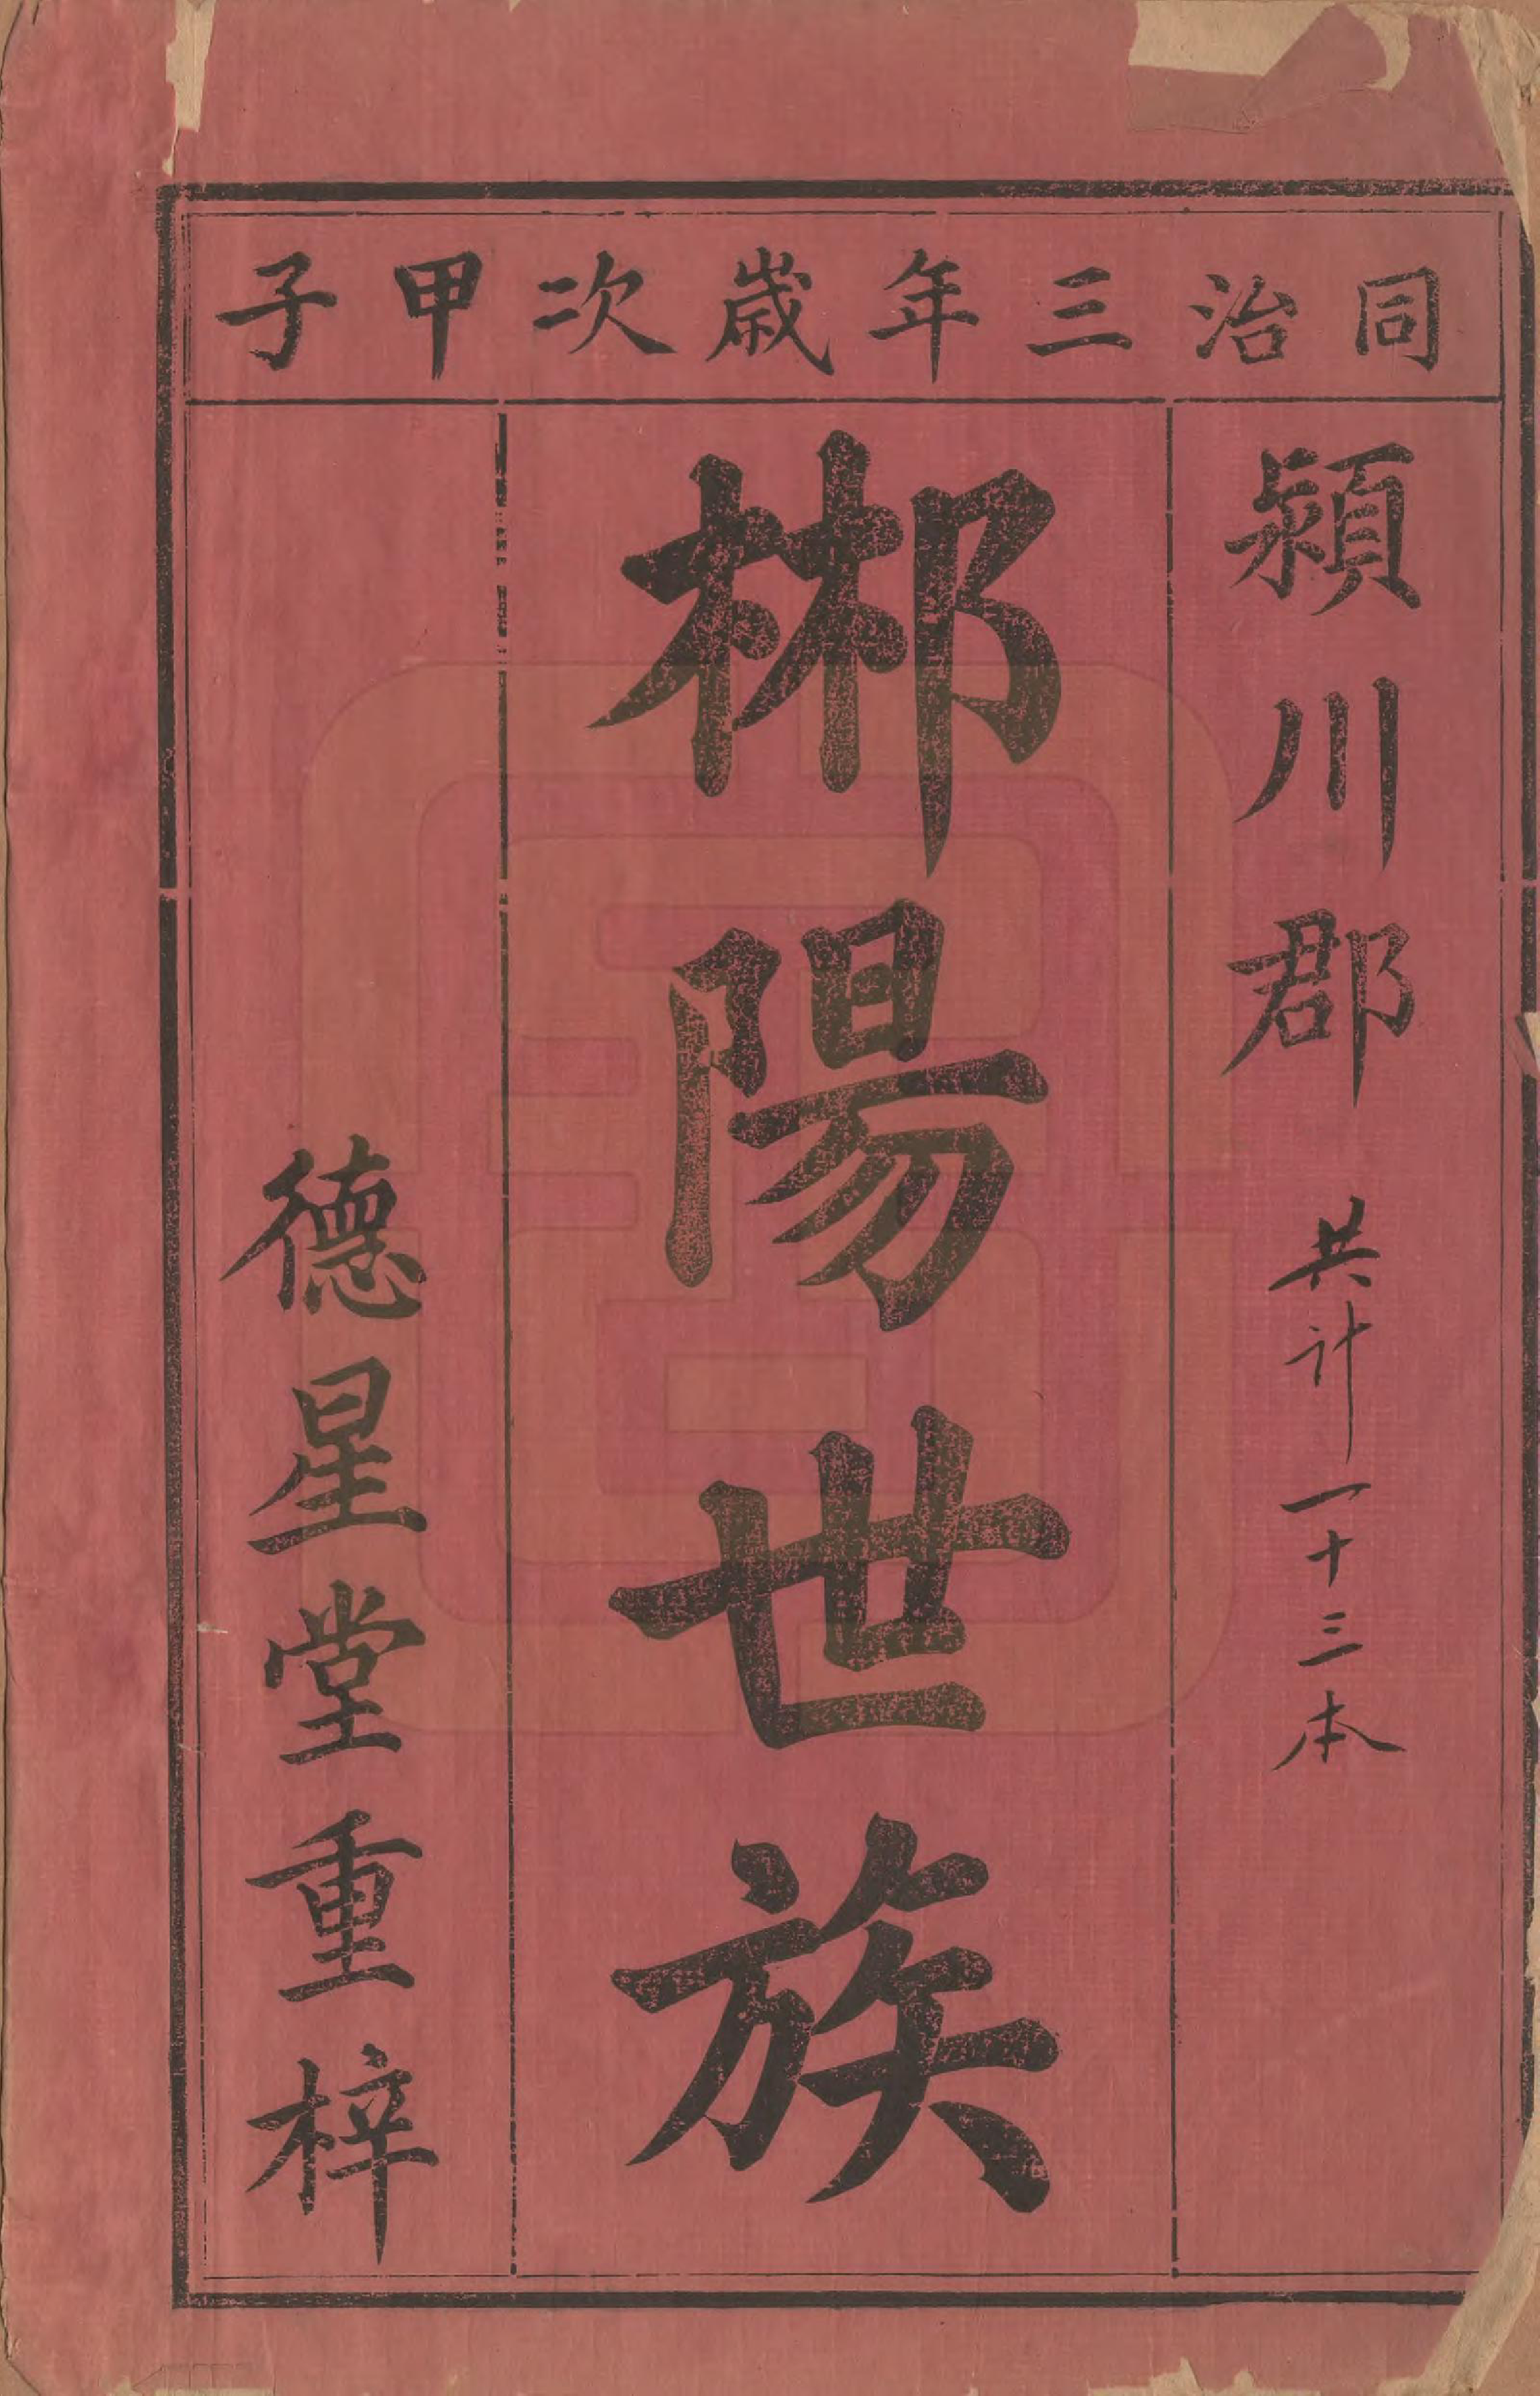 同治三年歲次甲子
潁川郡 共計一十三本
郴陽世族
德星堂重梓